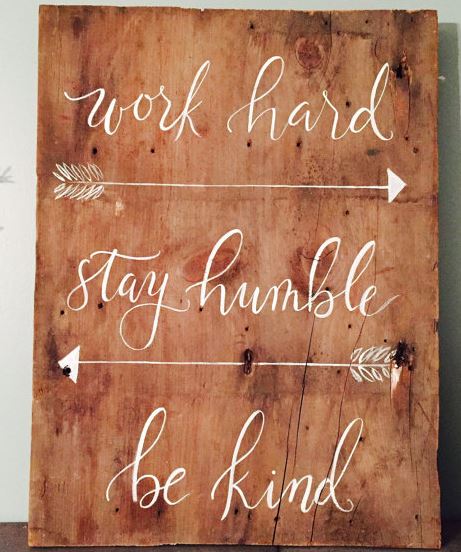 work hard
stay humble
be kind